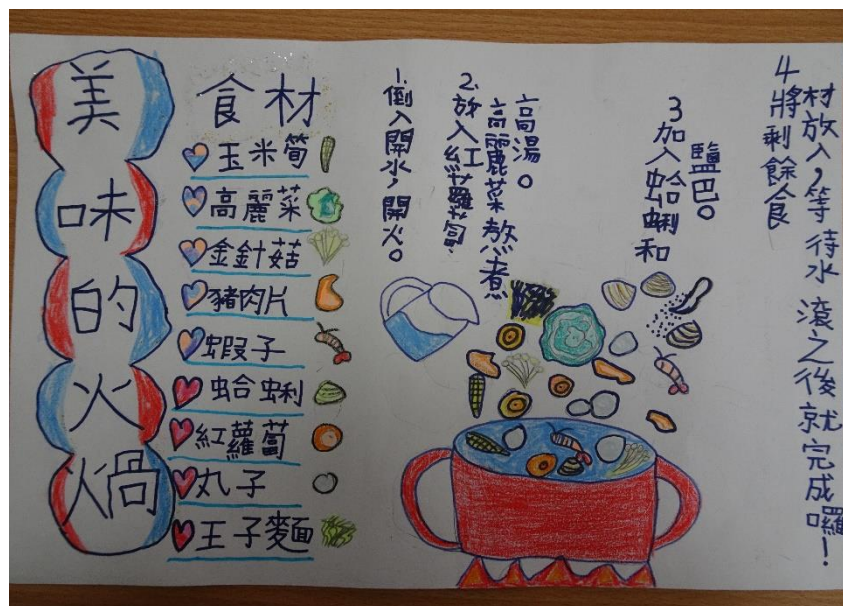 美味的火鍋
食材
玉米筍
高麗菜
金針菇
豬肉片
蝦子
蛤蜊
紅蘿蔔
丸子
王子麵
1.倒入開水，開火。
2.放入紅蘿蔔、
高麗菜熬煮
高湯。
3加入蛤蜊和
鹽巴。
4將剩餘食
材放入，等待水滾之後就完成囉！